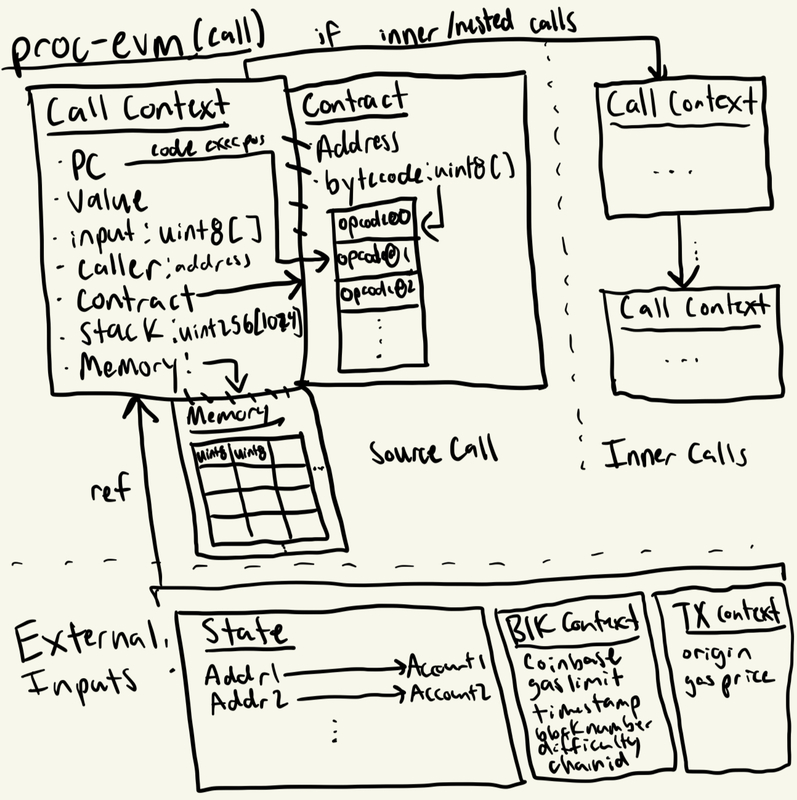 proc-evm (call)
if inner/nested calls
Call Context
· PC code exec pos
· Value
· input: uint8[]
· caller: address
· Contract
· Stack: uint256[1024]
· Memory:
Contract
· Address
· bytecode: uint8[]
opcode@0
opcode@1
opcode@2
Call Context
...
Call Context
...
Memory
uint8 uint8
...
Source Call
Inner Calls
ref
External
Inputs
State
Addr1 Account1
Addr2 Account2
BlK Context
coinbase
gas limit
timestamp
block number
difficulty
chainid
TX Context
origin
gas price